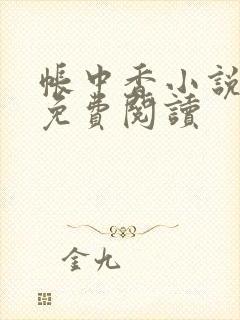 帳中香小說
免費閱讀
金九